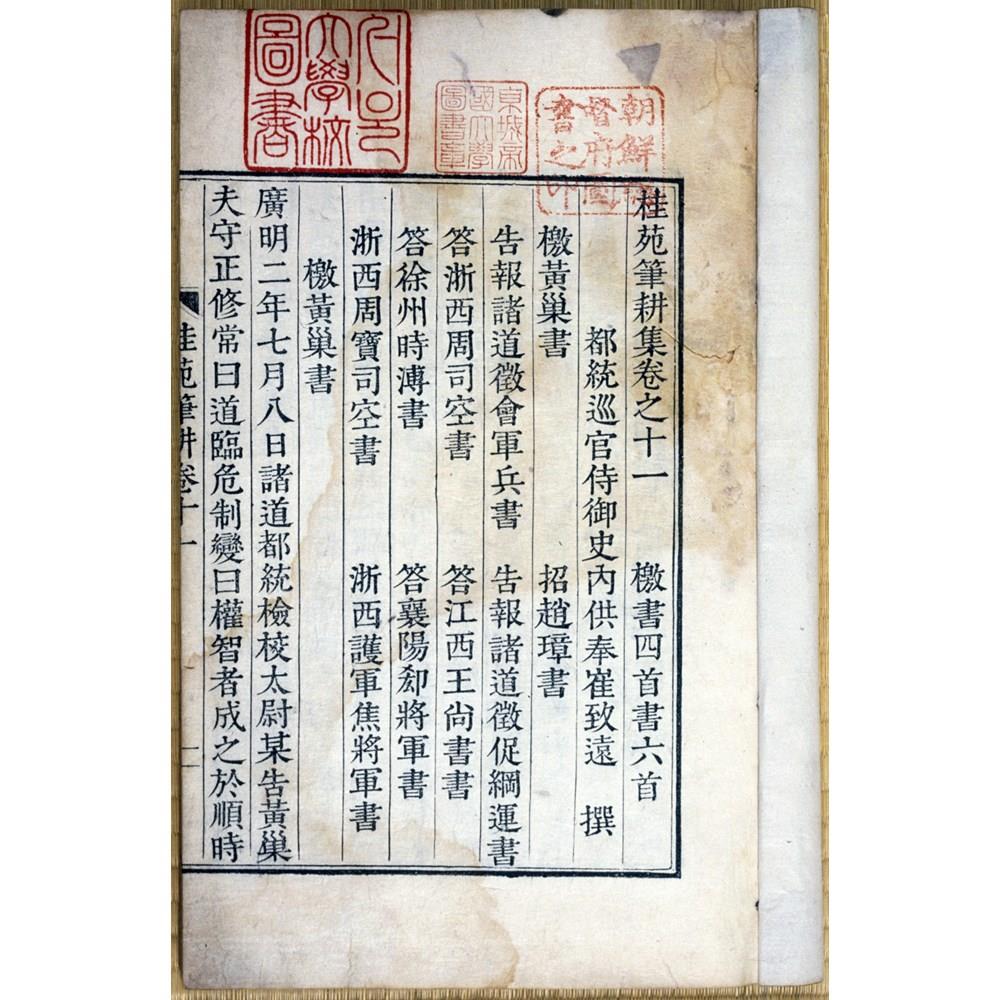 桂苑筆耕集卷之十一 檄書四首書六首
都統巡官侍御史內供奉崔致遠 撰
檄黃巢書 招趙璋書
告報諸道徵會軍兵書 告報諸道徵促綱運書
答浙西周司空書 答江西王尙書書
答徐州時溥書 答襄陽郄將軍書
浙西周寶司空書 浙西護軍焦將軍書
檄黃巢書
廣明二年七月八日諸道都統檢校太尉某告黃巢
夫守正修常曰道臨危制變曰權智者成之於順時
桂苑筆耕卷十一
一
朝鮮總督府圖書之印
京城帝國大學圖書章
大學校圖書